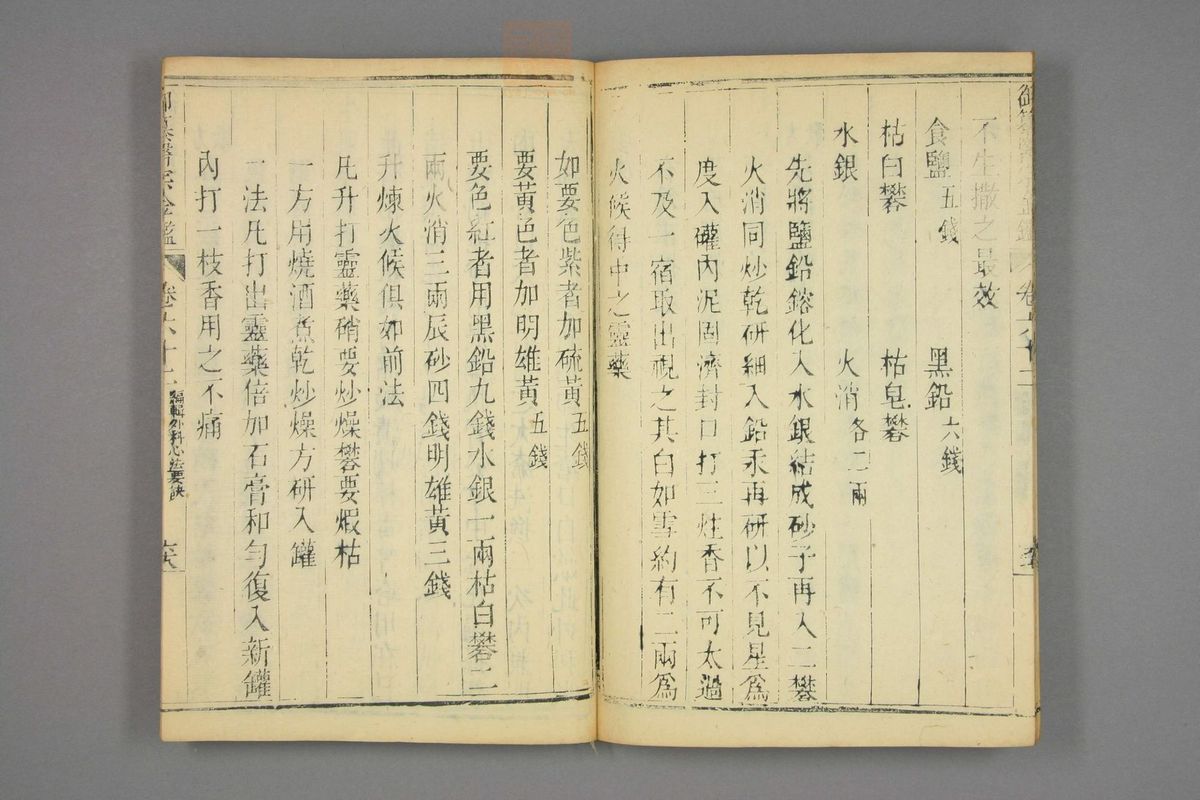 不生撒之最效
食鹽五錢　黑鉛六錢
枯白礬　枯皂礬
水銀　火消各二兩
先將鹽鉛鎔化入水銀結成砂子再入二礬
火消同炒乾研細入鉛汞再研以不見星爲
度入罐內泥固濟封口打三炷香不可太過
不及一宿取出視之其白如雪約有二兩爲
火候得中之靈藥
如要色紫者加硫黃五錢
要黃色者加明雄黃五錢
要色紅者用黑鉛九錢水銀一兩枯白礬二
兩火消三兩辰砂四錢明雄黃三錢
升煉火候俱如前法
凡升打靈藥硝要炒燥礬要煆枯
一方用燒酒煮乾炒燥方研入罐
一法凡打出靈藥倍加石膏和勻復入新罐
內打一枝香用之不痛
卷六十二
編輯外科心法要訣